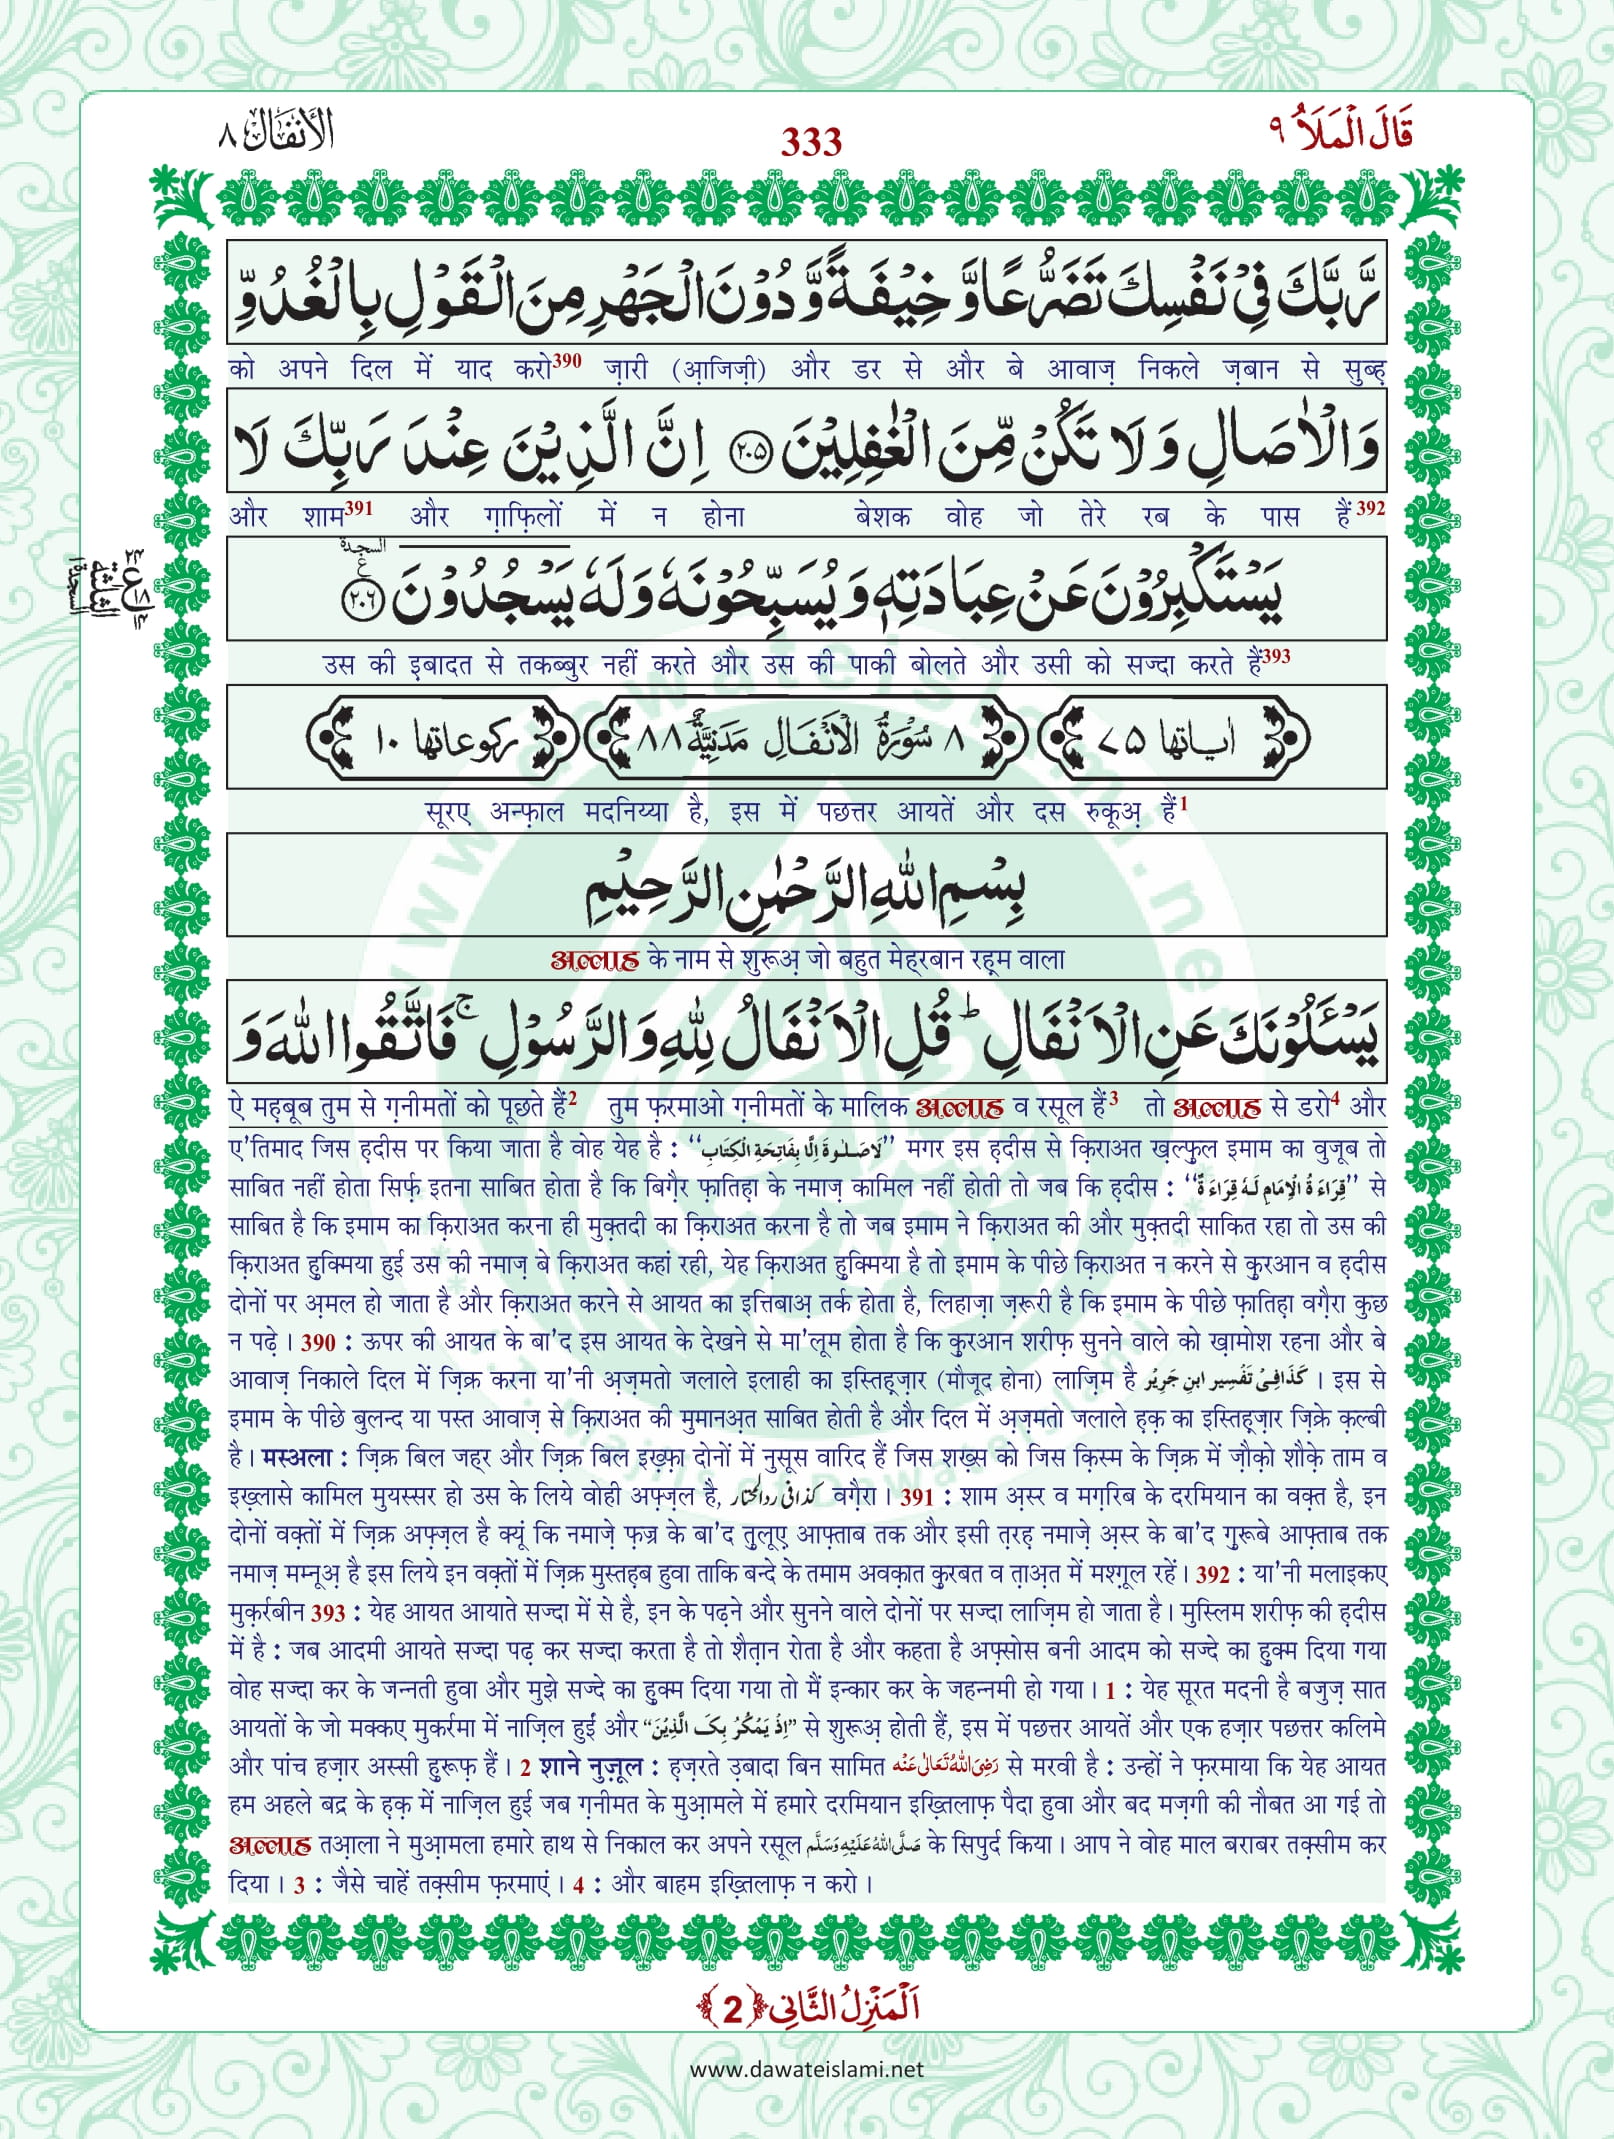 قَالَ الْمَلَاُ ٩
333
الأنفال ٨
رَّبَّكَ فِیْ نَفْسِكَ تَضَرُّعًا وَّ خِیْفَةً وَّ دُوْنَ الْجَهْرِ مِنَ الْقَوْلِ بِالْغُدُوِّ
को अपने दिल में याद करो390 ज़ारी (आ़जिज़ी) और डर से और बे आवाज़ निकले ज़बान से सुब्ह़
وَ الْاٰصَالِ وَ لَا تَكُنْ مِّنَ الْغٰفِلِیْنَ ﴿۲۰۵﴾ اِنَّ الَّذِیْنَ عِنْدَ رَبِّكَ لَا
और शाम391 और ग़ाफ़िलों में न होना बेशक वोह जो तेरे रब के पास हैं392
یَسْتَكْبِرُوْنَ عَنْ عِبَادَتِهٖ وَ یُسَبِّحُوْنَهٗ وَ لَهٗ یَسْجُدُوْنَ ﴿۲۰۶﴾ السجدة
उस की इबादत से तकब्बुर नहीं करते और उस की पाकी बोलते और उसी को सज्दा करते हैं393
اٰیاتها ۷۵ ۸ سُوْرَةُ الْاَنْفَالِ مَدَنِیَّةٌ ۸۸ رکوعاتها ۱۰
सूरए अन्फ़ाल मदनिय्या है, इस में पछत्तर आयतें और दस रुकूअ़ हैं1
بِسْمِ اللّٰهِ الرَّحْمٰنِ الرَّحِیْمِ
अल्लाह के नाम से शुरूअ़ जो बहुत मेहरबान रह़्म वाला
یَسْـَٔلُوْنَكَ عَنِ الْاَنْفَالِ ؕ قُلِ الْاَنْفَالُ لِلّٰهِ وَ الرَّسُوْلِ ۚ فَاتَّقُوا اللّٰهَ وَ
ऐ मह़बूब तुम से ग़नीमतों को पूछते हैं2 तुम फ़रमाओ ग़नीमतों के मालिक अल्लाह व रसूल हैं3 तो अल्लाह से डरो4 और
ए'तिमाद जिस ह़दीस पर किया जाता है वोह येह है : ‘‘لَا صَلٰوةَ اِلَّا بِفَاتِحَةِ الْكِتَابِ’’ मगर इस ह़दीस से क़िराअत ख़ल्फ़ुल इमाम का वुजूब तो
साबित नहीं होता सिर्फ़ इतना साबित होता है कि बिग़ैर फ़ातिह़ा के नमाज़ कामिल नहीं होती तो जब कि ह़दीस : ‘‘قِرَاءَةُ الْاِمَامِ لَهٗ قِرَاءَةٌ’’ से
साबित है कि इमाम का क़िराअत करना ही मुक़्तदी का क़िराअत करना है तो जब इमाम ने क़िराअत की और मुक़्तदी साकित रहा तो उस की
क़िराअत हुक्मिया हुई उस की नमाज़ बे क़िराअत कहां रही, येह क़िराअत हुक्मिया है तो इमाम के पीछे क़िराअत न करने से क़ुरआन व ह़दीस
दोनों पर अ़मल हो जाता है और क़िराअत करने से आयत का इत्तिबाअ़ तर्क होता है, लिहाज़ा ज़रूरी है कि इमाम के पीछे फ़ातिह़ा वग़ैरा कुछ
न पढ़े । 390 : ऊपर की आयत के बा'द इस आयत के देखने से मा'लूम होता है कि क़ुरआन शरीफ़ सुनने वाले को ख़ामोश रहना और बे
आवाज़ निकाले दिल में ज़िक्र करना या'नी अज़मतो जलाले इलाही का इस्तिह़ज़ार (मौजूद होना) लाज़िम है كَذَا فِیْ تَفْسِیر ابنِ جَرِیْر । इस से
इमाम के पीछे बुलन्द या पस्त आवाज़ से क़िराअत की मुमानअ़त साबित होती है और दिल में अज़मतो जलाले ह़क़ का इस्तिह़ज़ार ज़िक्रे क़ल्बी
है । मस्अला : ज़िक्र बिल जहर और ज़िक्र बिल इख़्फ़ा दोनों में नुसूस वारिद हैं जिस शख़्स को जिस क़िस्म के ज़िक्र में ज़ौक़ो शौक़े ताम व
इख़्लासे कामिल मुयस्सर हो उस के लिये वोही अफ़्ज़ल है, كذا فی رد المحتار वग़ैरा । 391 : शाम अ़स्र व मग़रिब के दरमियान का वक़्त है, इन
दोनों वक़्तों में ज़िक्र अफ़्ज़ल है क्यूं कि नमाज़े फ़ज्र के बा'द तुलूए आफ़्ताब तक और इसी त़रह़ नमाज़े अ़स्र के बा'द ग़ुरूबे आफ़्ताब तक
नमाज़ मम्नूअ़ है इस लिये इन वक़्तों में ज़िक्र मुस्तह़ब हुवा ताकि बन्दे के तमाम अवक़ात क़ुरबत व त़ाअ़त में मश्ग़ूल रहें । 392 : या'नी मलाइकए
मुक़र्रबीन 393 : येह आयत आयाते सज्दा में से है, इन के पढ़ने और सुनने वाले दोनों पर सज्दा लाज़िम हो जाता है । मुस्लिम शरीफ़ की ह़दीस
में है : जब आदमी आयते सज्दा पढ़ कर सज्दा करता है तो शैत़ान रोता है और कहता है अफ़्सोस बनी आदम को सज्दे का हुक्म दिया गया
वोह सज्दा कर के जन्नती हुवा और मुझे सज्दे का हुक्म दिया गया तो मैं इन्कार कर के जहन्नमी हो गया । 1 : येह सूरत मदनी है बजुज़ सात
आयतों के जो मक्कए मुकर्रमा में नाज़िल हुईं और ‘‘اِذْ یَمْكُرُ بِكَ الَّذِیْنَ’’ से शुरूअ़ होती हैं, इस में पछत्तर आयतें और एक हज़ार पछत्तर कलिमे
और पांच हज़ार अस्सी हुरूफ़ हैं । 2 शाने नुज़ूल : ह़ज़रते उ़बादा बिन सामित رَضِیَ اللّٰهُ تَعَالٰی عَنْه से मरवी है : उन्हों ने फ़रमाया कि येह आयत
हम अहले बद्र के ह़क़ में नाज़िल हुई जब ग़नीमत के मुआ़मले में हमारे दरमियान इख़्तिलाफ़ पैदा हुवा और बद मज़गी की नौबत आ गई तो
अल्लाह तआ़ला ने मुआ़मला हमारे हाथ से निकाल कर अपने रसूल صَلَّی اللّٰهُ عَلَیْهِ وَسَلَّم के सिपुर्द किया । आप ने वोह माल बराबर तक़्सीम कर
दिया । 3 : जैसे चाहें तक़्सीम फ़रमाएं । 4 : और बाहम इख़्तिलाफ़ न करो ।
اَلْمَنْزِلُ الثَّانِی ﴿2﴾
www.dawateislami.net